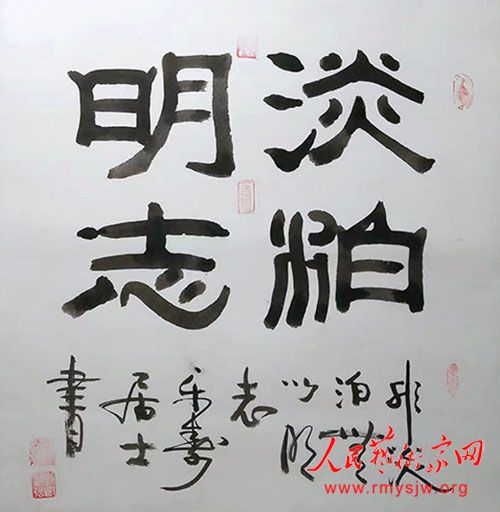 淡泊
明志
非淡
泊無
以明
志
壽
居士
書
人民藝术家网
www.rmysjw.org